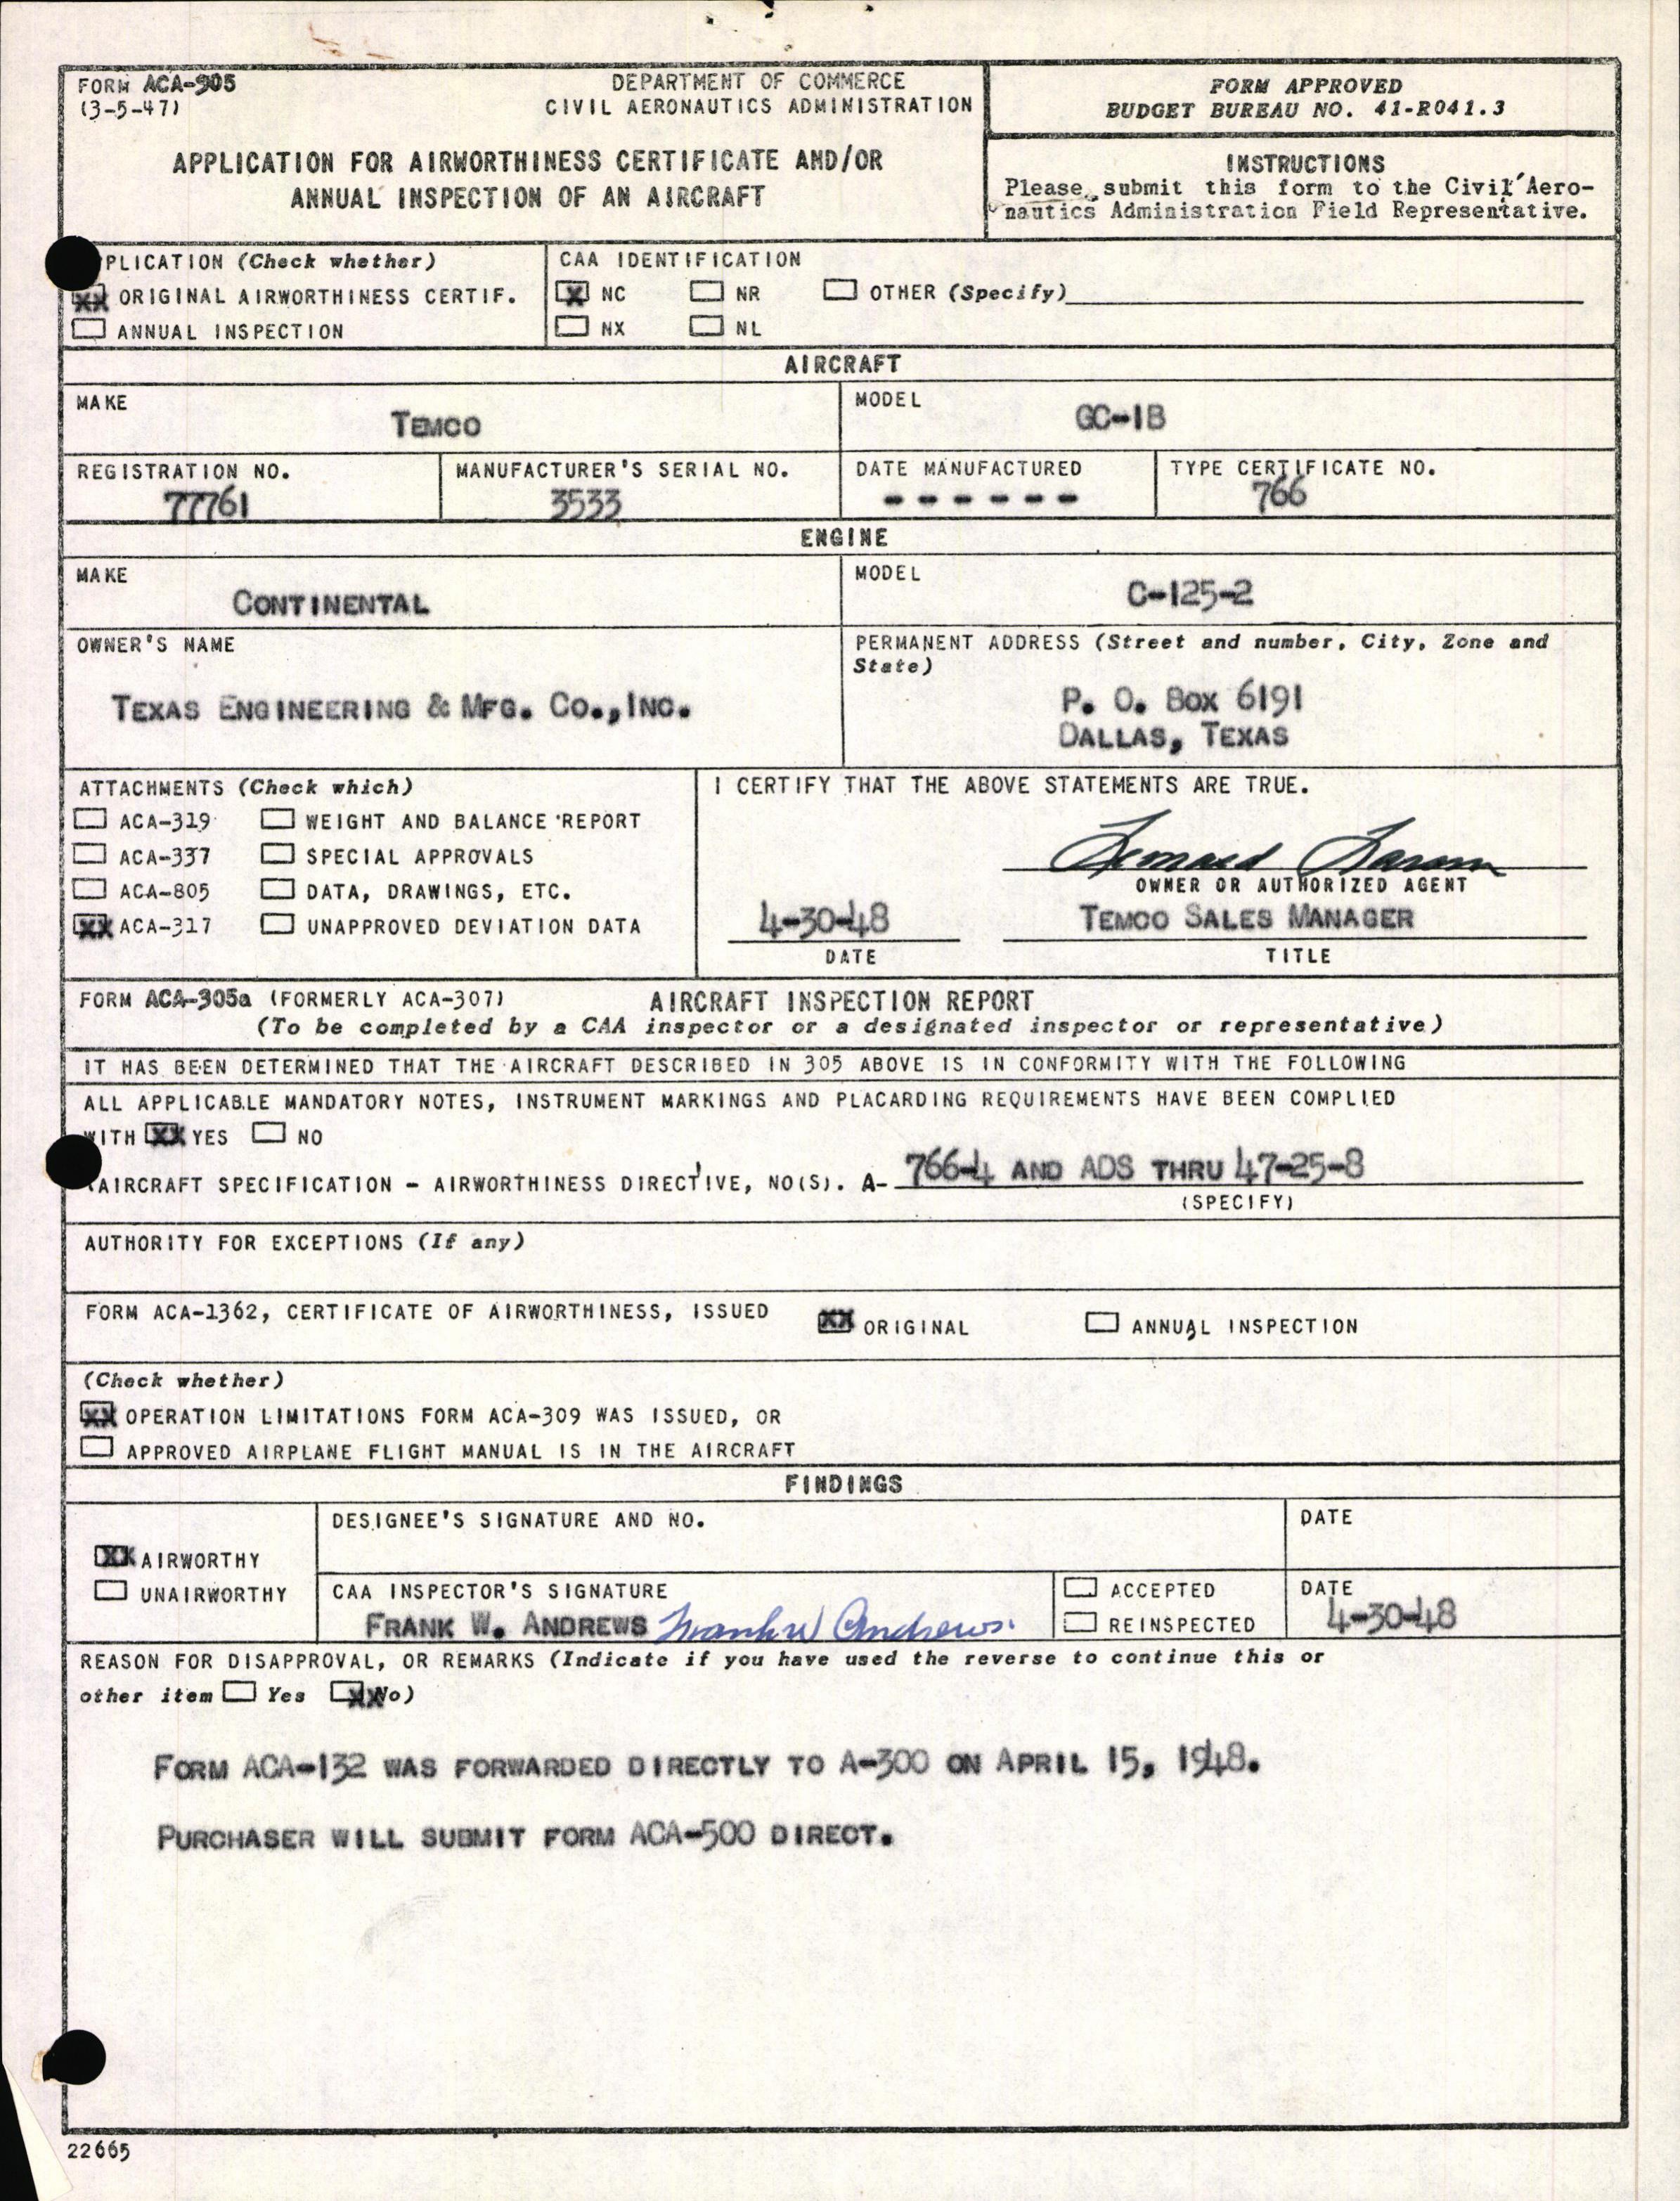 FORM ACA-305
(3-5-47)
DEPARTMENT OF COMMERCE
CIVIL AERONAUTICS ADMINISTRATION
APPLICATION FOR AIRWORTHINESS CERTIFICATE AND/OR
ANNUAL INSPECTION OF AN AIRCRAFT
FORM APPROVED
BUDGET BUREAU NO. 41-R041.3
INSTRUCTIONS
Please submit this form to the Civil Aero-
nautics Administration Field Representative.
PLICATION (Check whether)
XX ORIGINAL AIRWORTHINESS CERTIF.
ANNUAL INSPECTION
CAA IDENTIFICATION
X NC NR OTHER (Specify)
NX NL
AIRCRAFT
MAKE
TEMCO
MODEL
GC-1B
REGISTRATION NO.
77761
MANUFACTURER'S SERIAL NO.
3533
DATE MANUFACTURED
- - - - - -
TYPE CERTIFICATE NO.
766
ENGINE
MAKE
CONTINENTAL
MODEL
C-125-2
OWNER'S NAME
TEXAS ENGINEERING & MFG. CO., INC.
PERMANENT ADDRESS (Street and number, City, Zone and
State)
P. O. BOX 6191
DALLAS, TEXAS
ATTACHMENTS (Check which)
ACA-319 WEIGHT AND BALANCE REPORT
ACA-337 SPECIAL APPROVALS
ACA-805 DATA, DRAWINGS, ETC.
XX ACA-317 UNAPPROVED DEVIATION DATA
I CERTIFY THAT THE ABOVE STATEMENTS ARE TRUE.
OWNER OR AUTHORIZED AGENT
4-30-48
DATE
TEMCO SALES MANAGER
TITLE
FORM ACA-305a (FORMERLY ACA-307) AIRCRAFT INSPECTION REPORT
(To be completed by a CAA inspector or a designated inspector or representative)
IT HAS BEEN DETERMINED THAT THE AIRCRAFT DESCRIBED IN 305 ABOVE IS IN CONFORMITY WITH THE FOLLOWING
ALL APPLICABLE MANDATORY NOTES, INSTRUMENT MARKINGS AND PLACARDING REQUIREMENTS HAVE BEEN COMPLIED
WITH XX YES NO
(AIRCRAFT SPECIFICATION - AIRWORTHINESS DIRECTIVE, NO(S). A- 766-4 AND ADS THRU 47-25-8
(SPECIFY)
AUTHORITY FOR EXCEPTIONS (If any)
FORM ACA-1362, CERTIFICATE OF AIRWORTHINESS, ISSUED XX ORIGINAL ANNUAL INSPECTION
(Check whether)
XX OPERATION LIMITATIONS FORM ACA-309 WAS ISSUED, OR
APPROVED AIRPLANE FLIGHT MANUAL IS IN THE AIRCRAFT
FINDINGS
XX AIRWORTHY
UNAIRWORTHY
DESIGNEE'S SIGNATURE AND NO.
DATE
CAA INSPECTOR'S SIGNATURE
FRANK W. ANDREWS Frank W Andrews.
ACCEPTED
REINSPECTED
DATE
4-30-48
REASON FOR DISAPPROVAL, OR REMARKS (Indicate if you have used the reverse to continue this or
other item Yes XX No)
FORM ACA-132 WAS FORWARDED DIRECTLY TO A-300 ON APRIL 15, 1948.
PURCHASER WILL SUBMIT FORM ACA-500 DIRECT.
22665